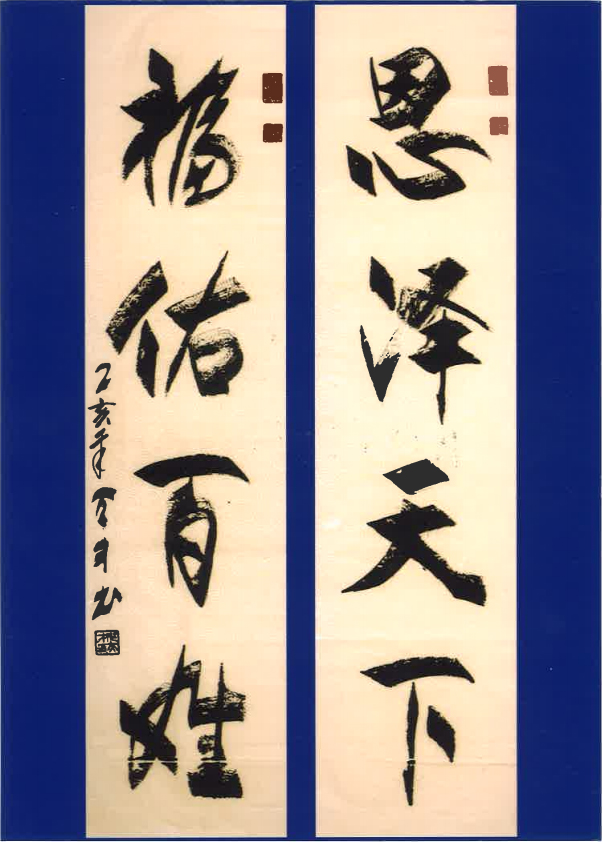 恩泽天下
福佑百姓
乙亥年